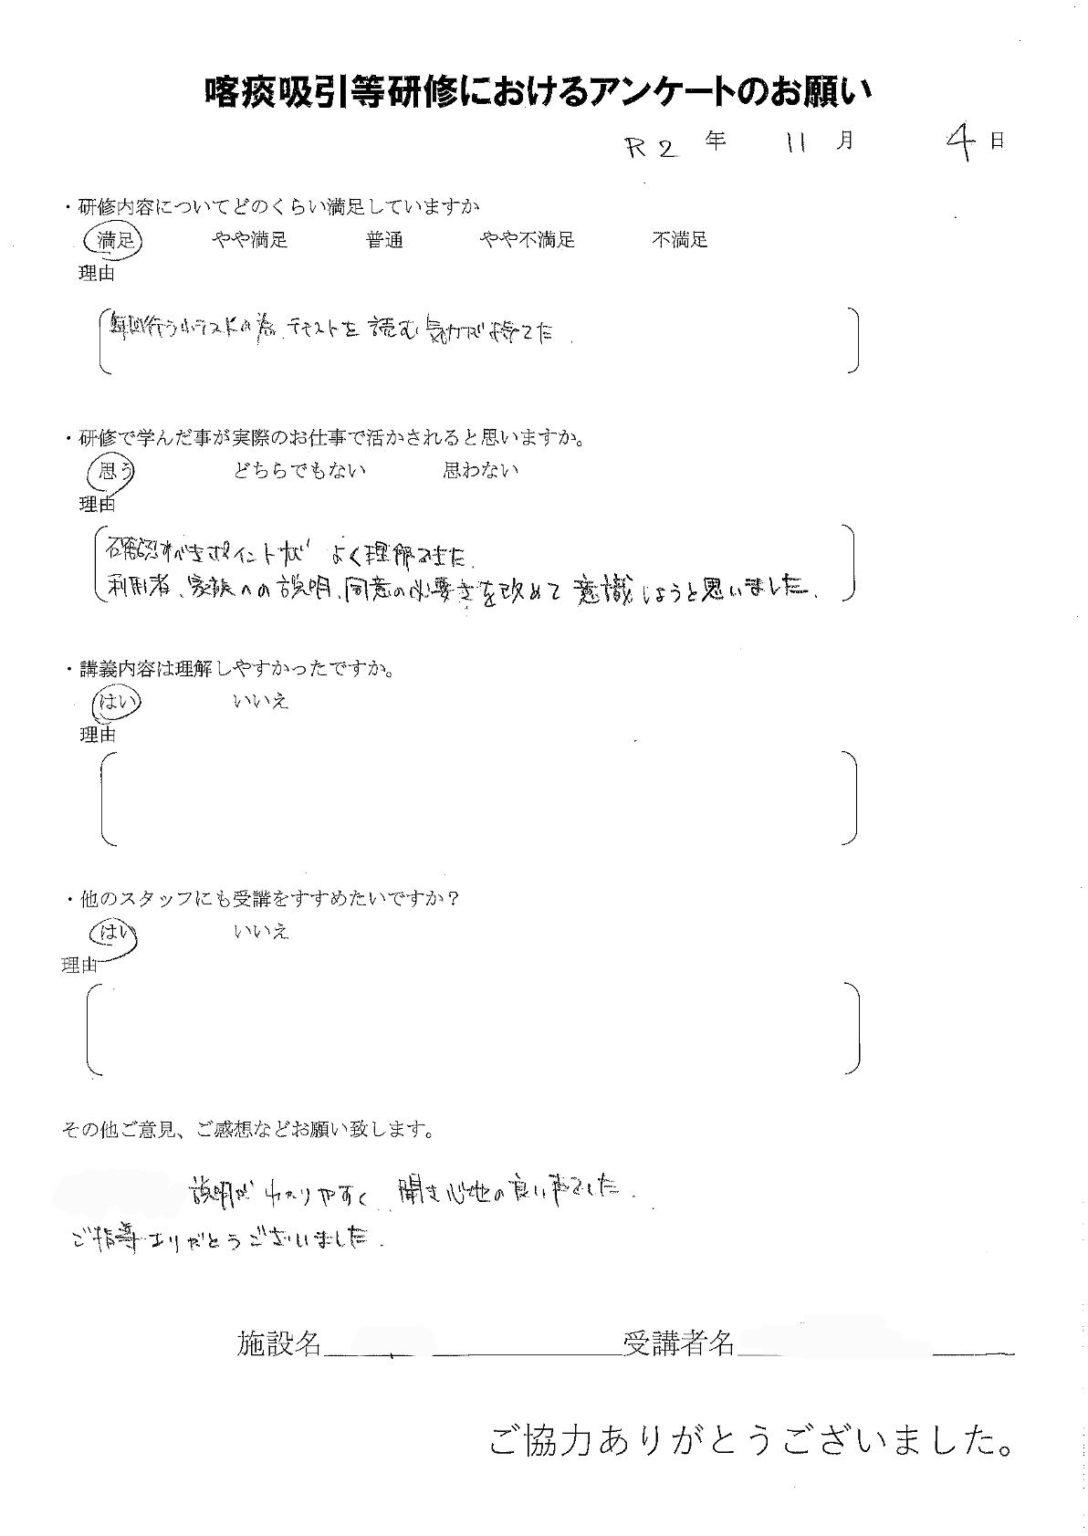 喀痰吸引等研修におけるアンケートのお願い
R2 年 11 月 4 日
・研修内容についてどのくらい満足していますか
満足 やや満足 普通 やや不満足 不満足
理由
毎回行う小テストの為、テキストを読む気力が持てた
・研修で学んだ事が実際のお仕事で活かされると思いますか。
思う どちらでもない 思わない
理由
確認すべきポイントが よく理解できた.
利用者、家族への説明、同意の必要さを改めて意識しようと思いました.
・講義内容は理解しやすかったですか。
はい いいえ
理由
・他のスタッフにも受講をすすめたいですか？
はい いいえ
理由
その他ご意見、ご感想などお願い致します。
説明が わかりやすく 聞き心地の良い声でした.
ご指導ありがとうございました.
施設名 受講者名
ご協力ありがとうございました。